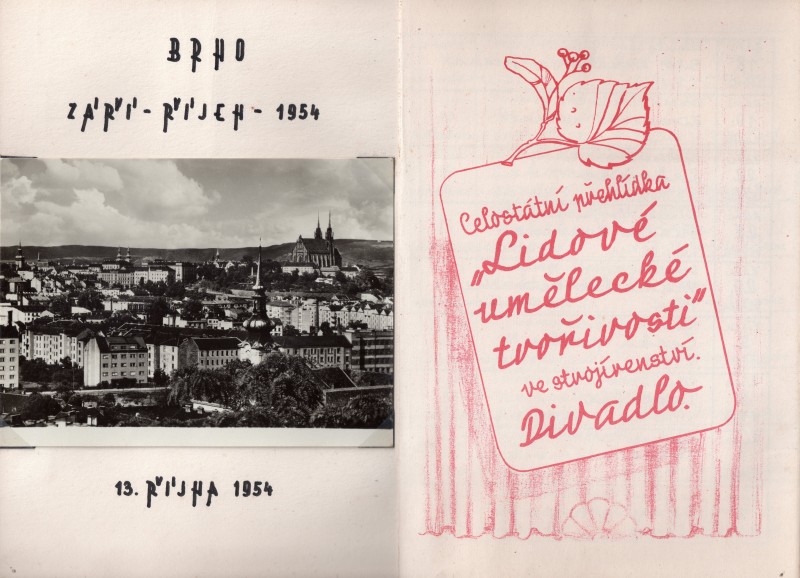 BRNO
ZÁŘÍ - ŘÍJEN - 1954
13. ŘÍJNA 1954
Celostátní přehlídka
„Lidové
umělecké
tvořivosti"
ve strojírenství.
Divadlo.